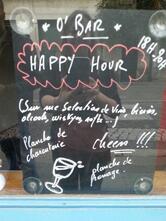 O' BAR
HAPPY HOUR
18H-20H
(Sur une Selection de Vins, bières,
alcools, wiskys, softs...)
Planche de
charcuterie
cheers !!!
planche de
fromage.